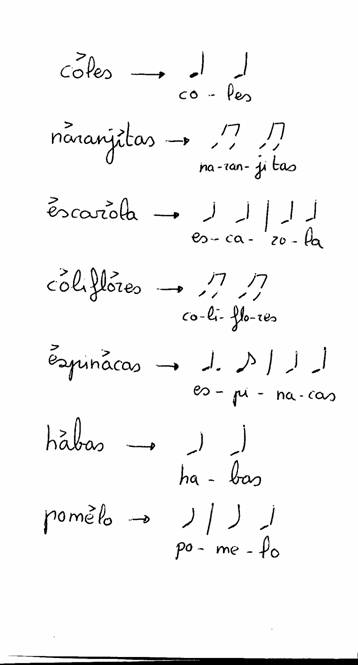 còles → ♩ ♩
co - les
nàranjìtas → ♫ ♫
na-ran-ji tas
èscaròla → ♩ ♩ | ♩ ♩
es - ca - ro - la
còliflòres → ♫ ♫
co-li-flo-res
èspinàcas → ♩. ♪ | ♩ ♩
es - pi - na - cas
hàbas → ♩ ♩
ha - bas
pomèlo → ♩ | ♩ ♩
po - me - lo